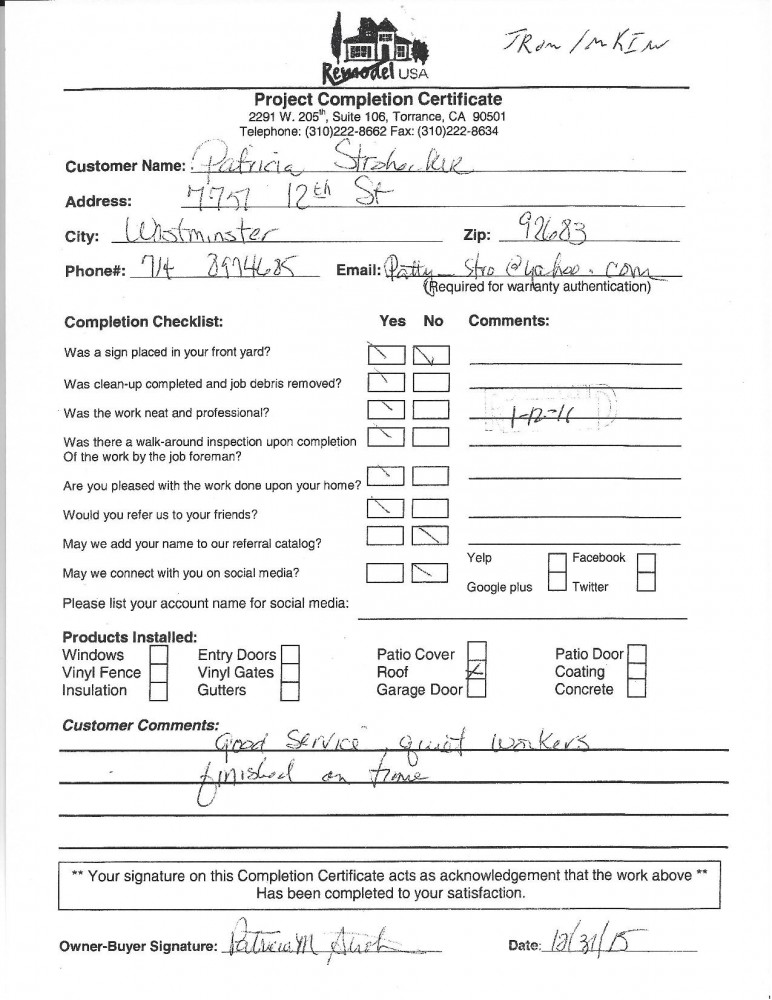 Remodel USA
Project Completion Certificate
2291 W. 205th, Suite 106, Torrance, CA 90501
Telephone: (310)222-8662 Fax: (310)222-8634
Customer Name: Patricia
Address: 7757 12th St
City: Westminster Zip: 92683
Phone#: 714 8974685 Email: Patty_stro@yahoo.com
(Required for warranty authentication)
Completion Checklist: Yes No Comments:
Was a sign placed in your front yard?
Was clean-up completed and job debris removed?
Was the work neat and professional?
1-12-16
Was there a walk-around inspection upon completion
Of the work by the job foreman?
Are you pleased with the work done upon your home?
Would you refer us to your friends?
May we add your name to our referral catalog?
Yelp Facebook
May we connect with you on social media?
Google plus Twitter
Please list your account name for social media:
Products Installed:
Windows Entry Doors Patio Cover Patio Door
Vinyl Fence Vinyl Gates Roof Coating
Insulation Gutters Garage Door Concrete
Customer Comments:
Good Service, quiet workers
finished on time
** Your signature on this Completion Certificate acts as acknowledgement that the work above **
Has been completed to your satisfaction.
Owner-Buyer Signature: Patricia M Date: 12/31/15